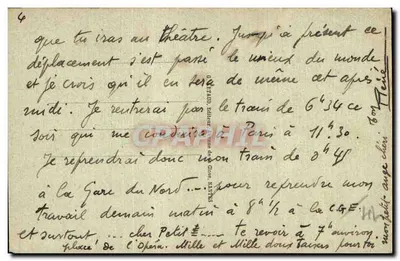 4
que tu iras au théâtre. Jusqu'à présent ce
déplacement s'est passé le mieux du monde
et je crois qu'il en sera de meme cet après
midi. Je rentrerai par le train de 6h34 ce
soir qui me conduira à Paris à 11h30.
Je reprendrai donc mon train de 0h48
à la Gare du Nord... pour reprendre mon
travail demain matin à 8h1/2 à la
et surtout... cher Petit te revoir à 7h environ
place de l'Opéra. Mille et Mille doux baisers pour toi
mon petit ange chéri
ton René
CPARAMA